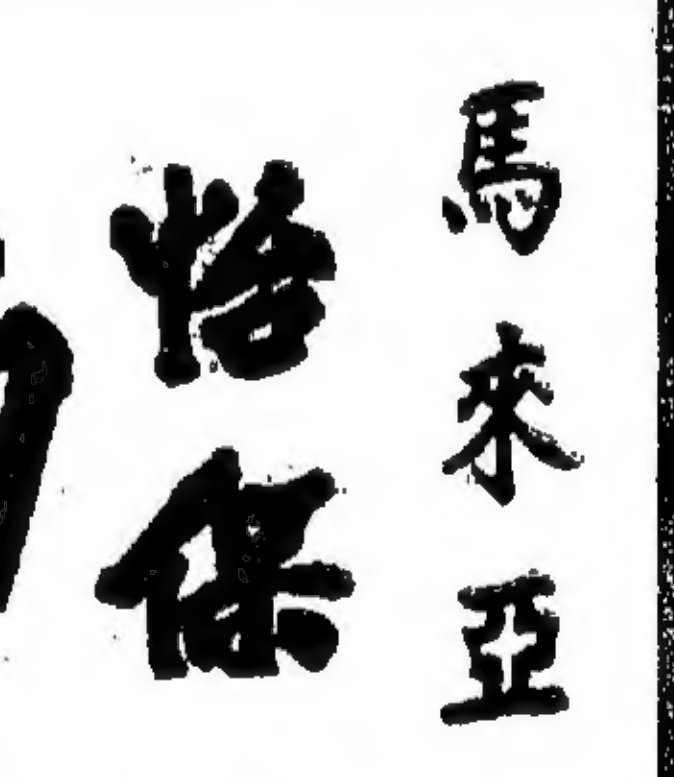 馬來亞
怡保